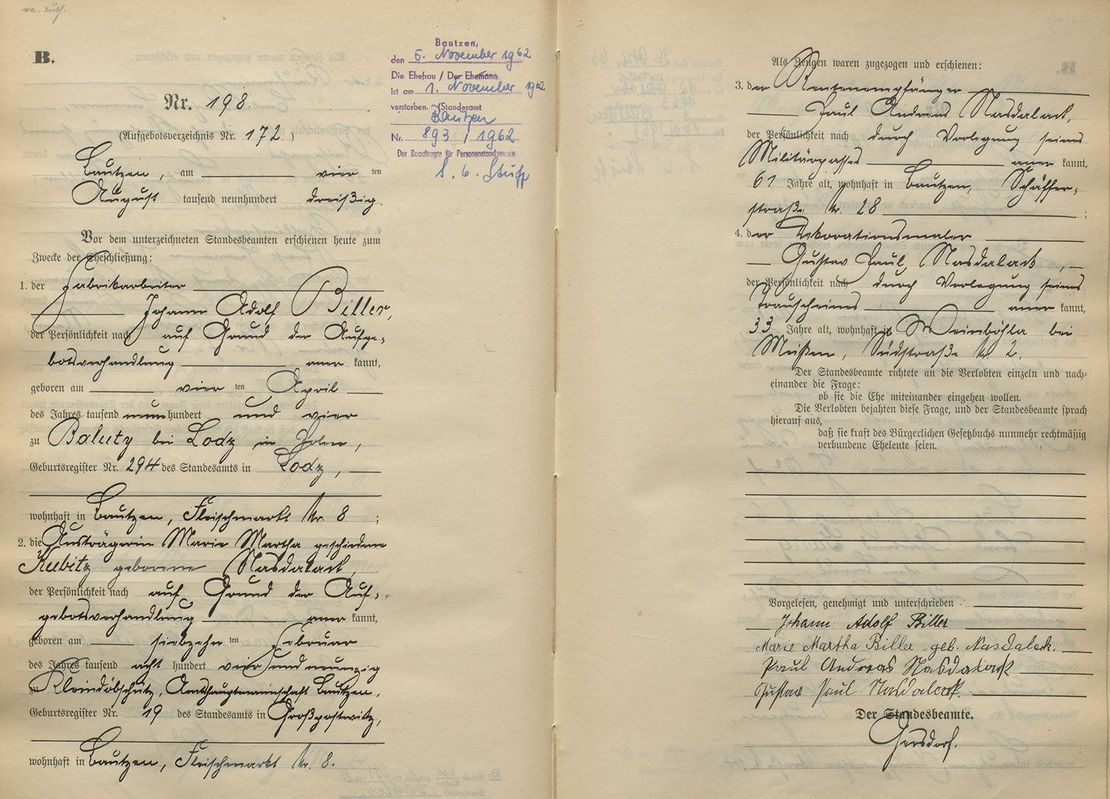 B.
Nr. 198.
(Aufgebotsverzeichnis Nr. 172.)
Bautzen, am vier ten
August tausend neunhundert dreißig.
Vor dem unterzeichneten Standesbeamten erschienen heute zum
Zwecke der Eheschließung:
1. der Fabrikarbeiter
Johann Adolf Biller,
der Persönlichkeit nach auf Grund der Aufge-
botsverhandlung aner kannt,
geboren am vier ten April
des Jahres tausend neunhundert und vier
zu Baluty bei Lodz in Polen,
Geburtsregister Nr. 294 des Standesamts in Lodz,
wohnhaft in Bautzen, Fleischmarkt Nr. 8 ;
2. die Austrägerin Marie Martha geschiedene
Kubitz geborene Nasdalack,
der Persönlichkeit nach auf Grund der Auf-
gebotsverhandlung aner kannt,
geboren am siebzehn ten Februar
des Jahres tausend acht hundert vier und neunzig
zu Kleindöbschütz, Amtshauptmannschaft Bautzen,
Geburtsregister Nr. 19 des Standesamts in Großpostwitz,
wohnhaft in Bautzen, Fleischmarkt Nr. 8.
Bautzen,
den 5. November 1962
Die Ehefrau / Der Ehemann
ist am 1. November 1962
verstorben. (Standesamt
Bautzen
Nr. 893 / 1962
Der Beauftragte für Personenstandswesen
Als Zeugen waren zugezogen und erschienen:
3. der Rentenempfänger
Paul Andreas Nasdalack,
der Persönlichkeit nach durch Vorlegung seines
Militärpasses aner kannt,
61 Jahre alt, wohnhaft in Bautzen, Schäffer-
straße Nr. 28 ;
4. der Dekorationsmaler
Gustav Paul Nasdalack,
der Persönlichkeit nach durch Vorlegung seines
Trauscheines aner kannt,
33 Jahre alt, wohnhaft in Weinböhla bei
Meißen, Südstraße Nr. 2.
Der Standesbeamte richtete an die Verlobten einzeln und nach-
einander die Frage:
ob sie die Ehe miteinander eingehen wollen.
Die Verlobten bejahten diese Frage, und der Standesbeamte sprach
hierauf aus,
daß sie kraft des Bürgerlichen Gesetzbuchs nunmehr rechtmäßig
verbundene Eheleute seien.
Vorgelesen, genehmigt und unterschrieben
Johann Adolf Biller
Marie Martha Biller geb. Nasdalack.
Paul Andreas Nasdalack
Gustav Paul Nasdalack.
Der Standesbeamte.
Gersdorf.